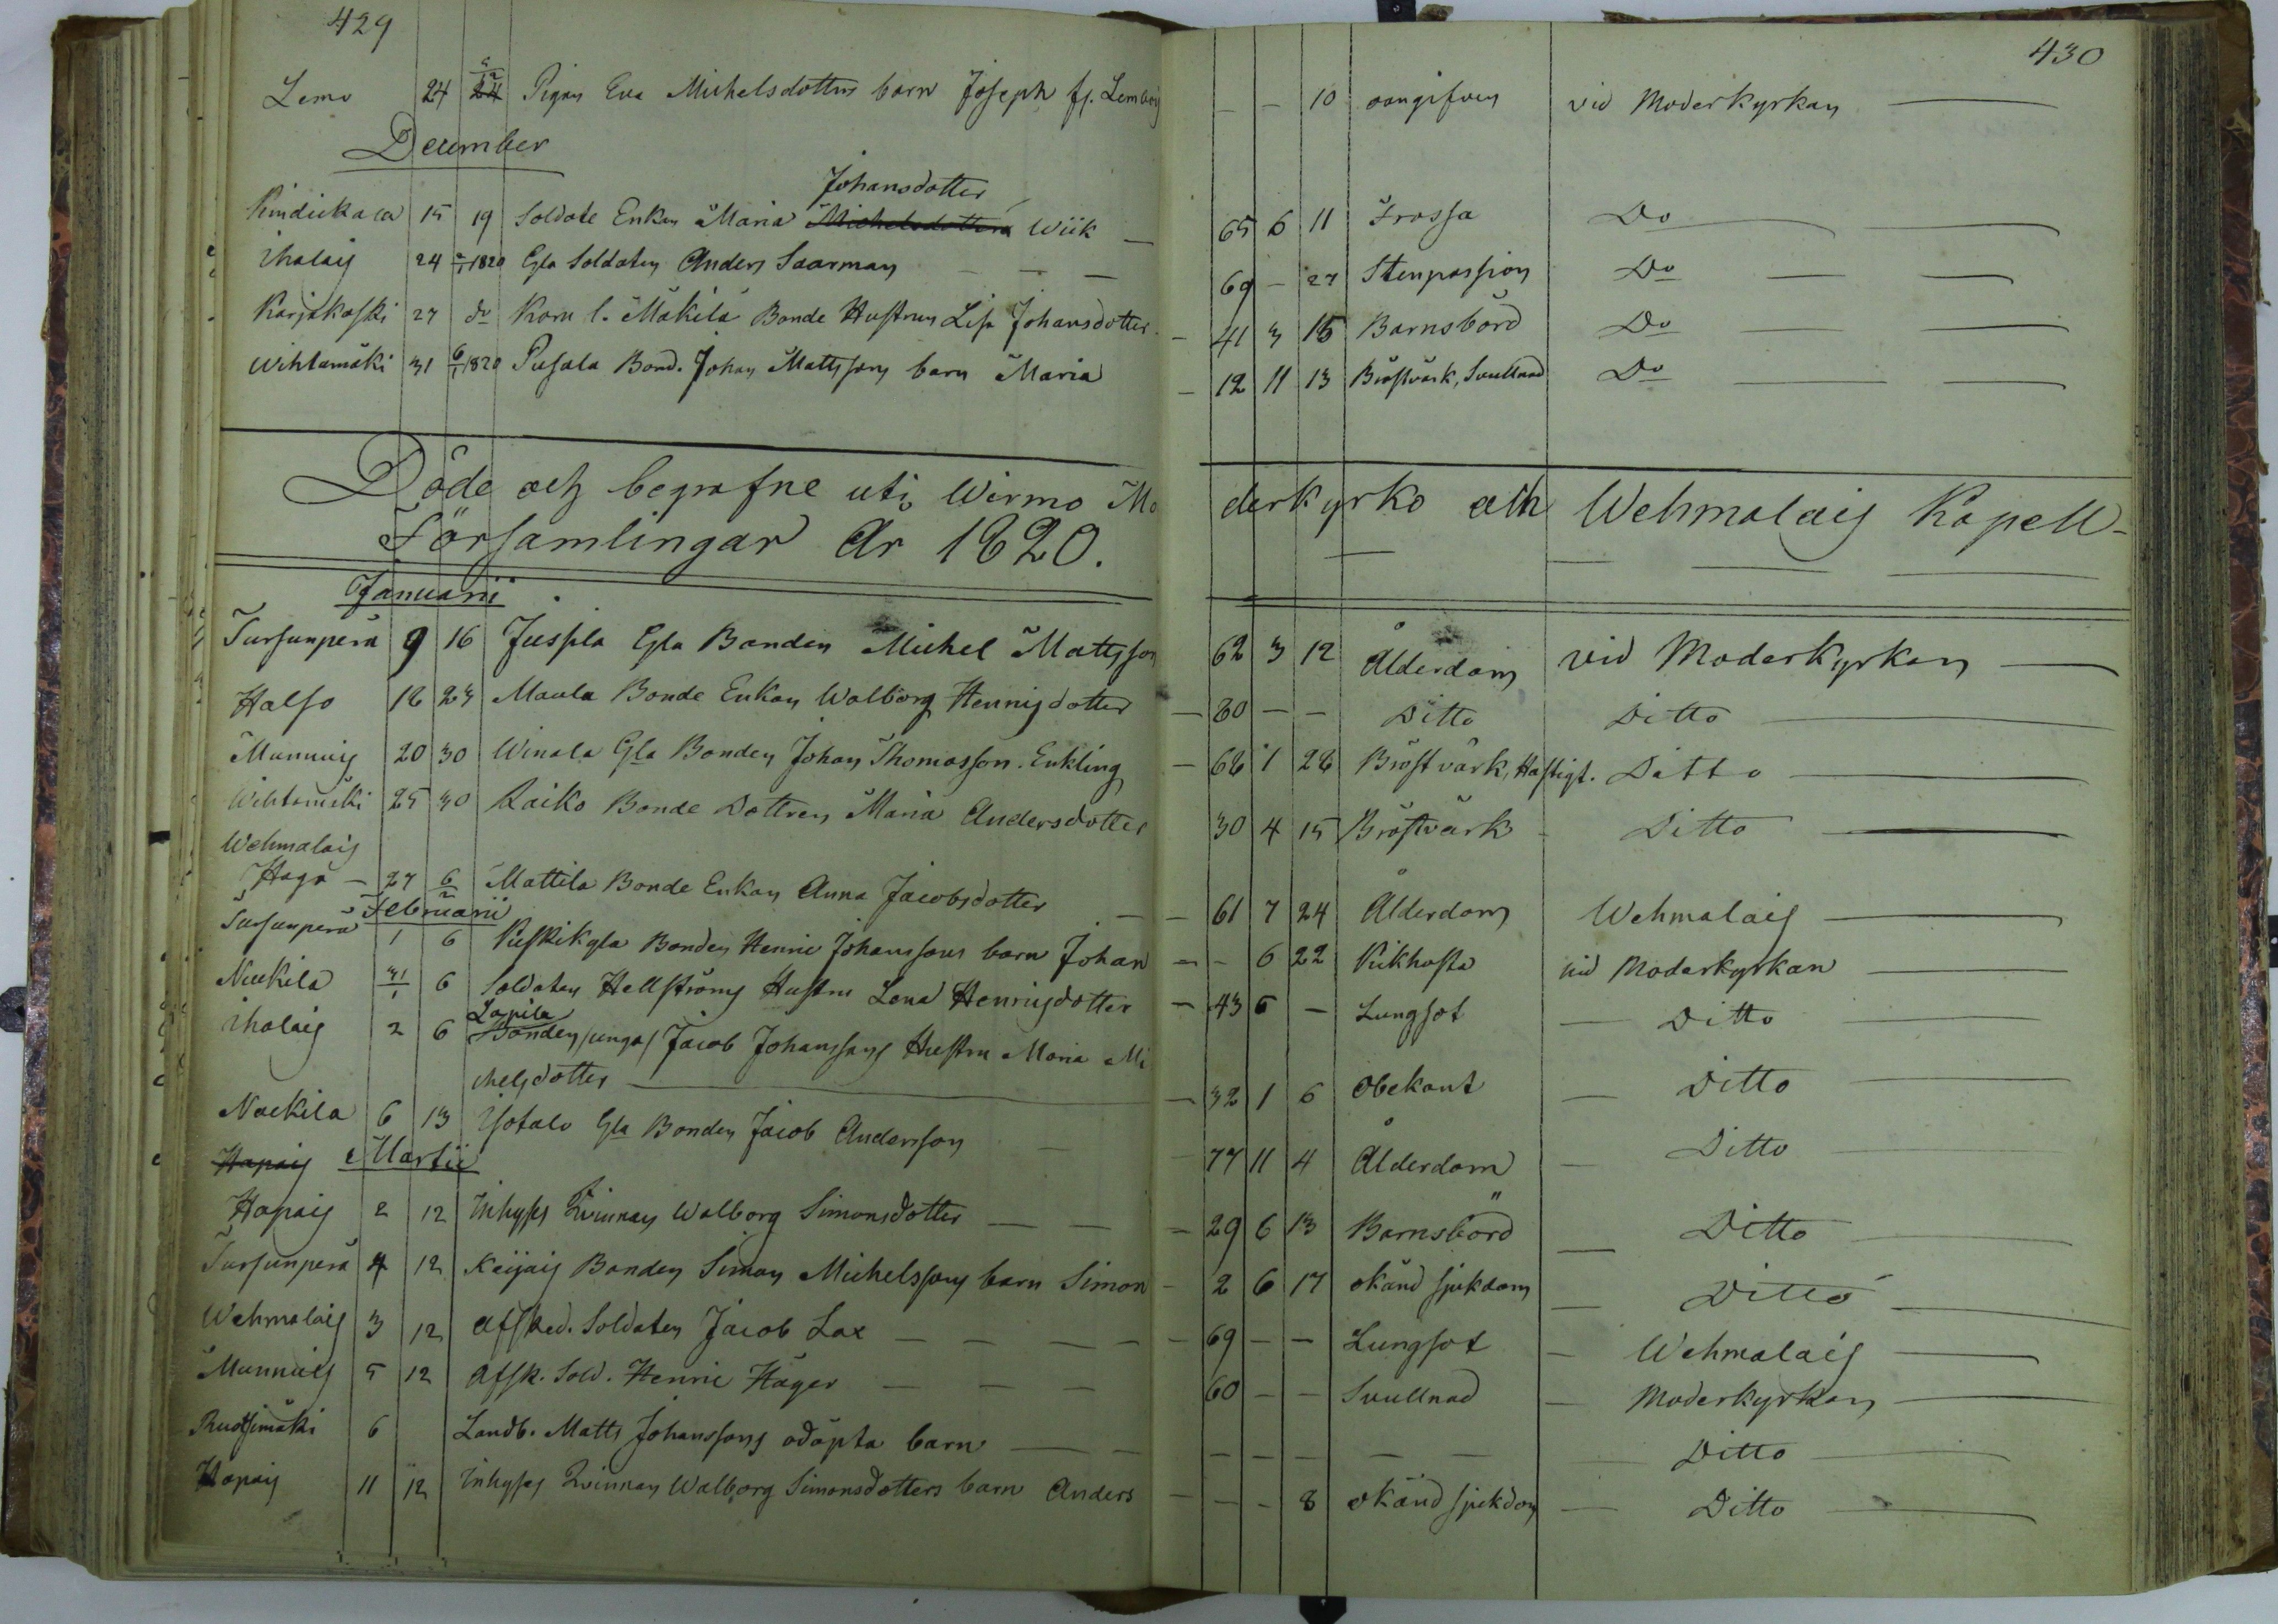 429
430
Lemo 24 Pigan Eva Michelsdotters barn Joseph fr. Lemböij — — 10 oangifven vid Moderkyrkan
December
Johansdotter
15 19 Soldate Enkan Maria Michelsdotter Wiik — 65 6 11 Frossa Do
Ihalais 24 2/1 1820 Gla Soldaten Anders Saarman — — — 69 — 27 Stenpassion Do
Karjakoski 27 do Korn l. Mäkilä Bonde Hustrun Lisa Johansdotter — 41 3 15 Barnsbörd Do
Wihtamäki 31 6/1 1820 Pusala Bond. Johan Mattssons barn Maria — 12 11 13 Bröstvärk, Svullnad Do
Döde och begrafne uti Wirmo Moderkyrko och Wehmalais Kapell-
Församlingar År 1820.
Januarii
Tursunperä 9 16 Juspla Gla Bonden Michel Mattsson 62 3 12 Ålderdom vid Moderkyrkan
Halso 18 23 Maula Bonde Enkan Walborg Henrigsdotter — 80 — — Ditto Ditto
Munnais 20 30 Winala Gla Bonden Johan Thomasson. Enkling — 68 1 28 Bröstvärk, Hastigt. Ditto
Wihtamäki 25 30 Raiko Bonde Dottren Maria Andersdotter 30 4 15 Bröstvärk Ditto
Wehmalais
Haga — 27 6/2 Mattila Bonde Enkan Anna Jacobsdotter — — 61 7 24 Ålderdom Wehmalais
Februarii
Tursunperä 1 6 Bonden Henric Johanssons barn Johan — — 6 22 Kikhosta vid Moderkyrkan
Nuckila 31/1 6 Soldaten Hellströms Hustru Lena Henrigsdotter — 43 6 — Lungsot — Ditto
Lapila
Ihalais 2 6 Bonden /unga/ Jacob Johanssons Hustru Maria Mi
chelsdotter — 32 1 6 Obekant — Ditto
Nuckila 6 13 Isotalo Gla Bonden Jacob Andersson — — 77 11 4 Ålderdom — Ditto
Hapais Martii
Hapais 2 12 Inhyses Qvinnan Walborg Simonsdotter — — — 29 6 13 Barnsbörd — Ditto
Tursunperä 4 12 Keijais Bonden Simon Michelssons barn Simon — 2 6 17 okänd sjukdom — Ditto
Wehmalais 3 12 Afsked. Soldaten Jacob Lax — — — — 69 — — Lungsot — Wehmalais
Munnais 5 12 Afsk. Sold. Henric Häger — — — 60 — — Svullnad — Moderkyrkan
Ruotsimäki 6 Landb. Matts Johanssons odöpta barn — — — — — — — Ditto
Hapais 11 12 Inhyses Qvinnan Walborg Simonsdotters barn Anders — — — 8 okänd sjukdom — Ditto